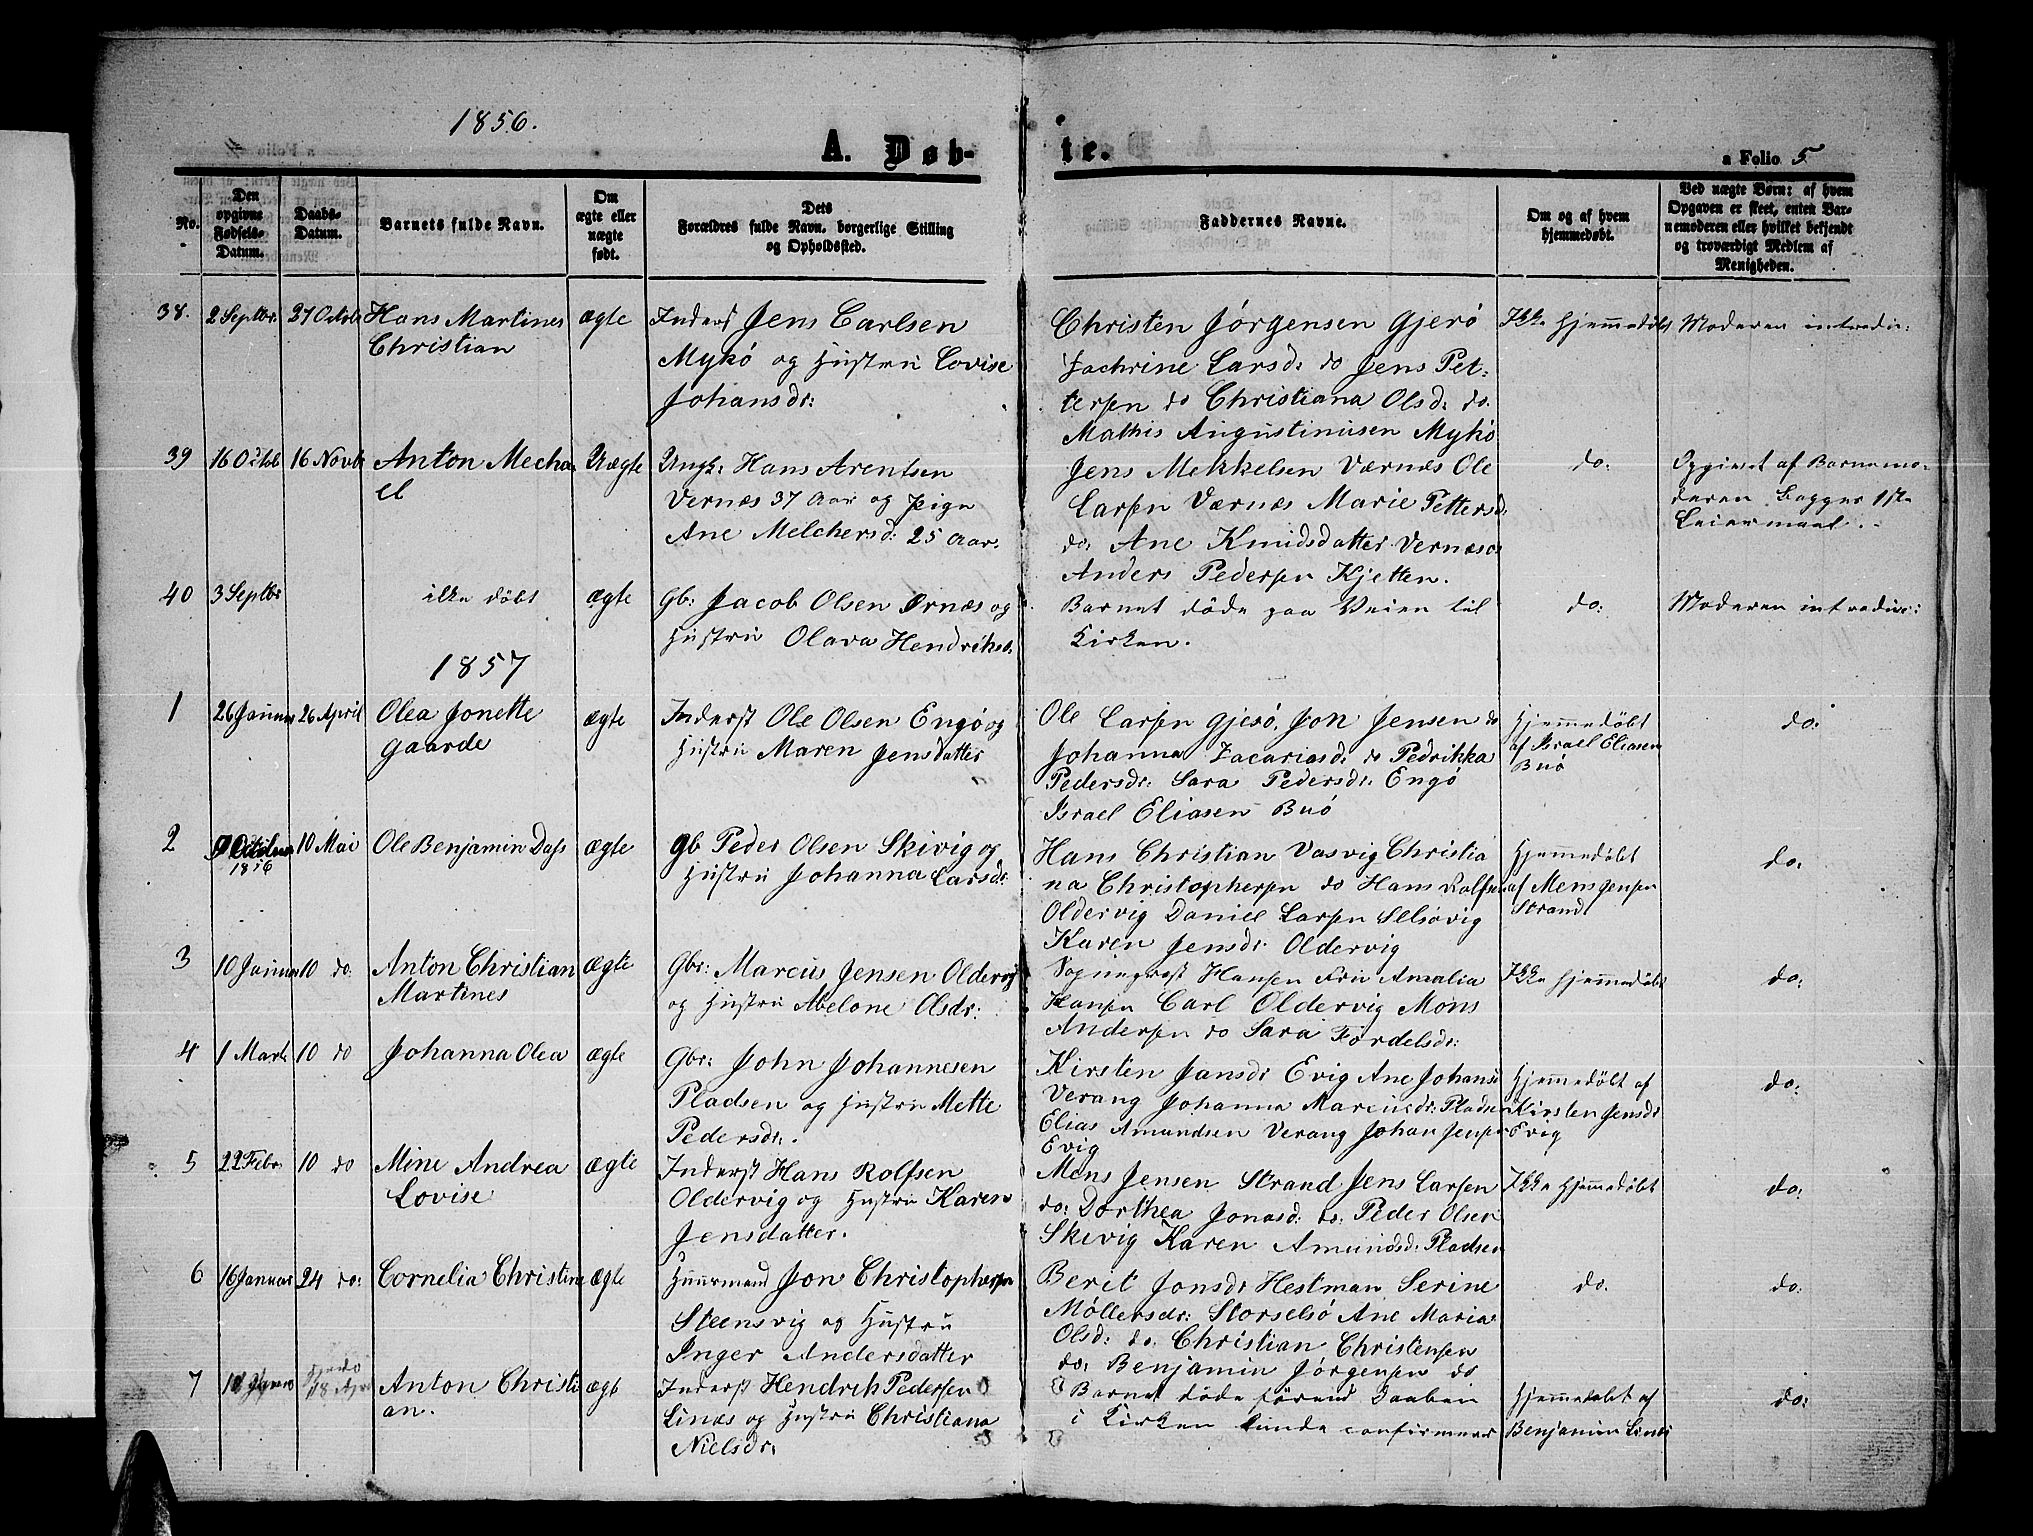 1856.
A. Døb-
te.
a Folio 5
No.
Den
opgivne
Fødsels-
Datum.
Daabs-
Datum.
Barnets fulde Navn.
Om
ægte eller
uægte
født.
Dets
Forældres fulde Navn, borgerlige Stilling
og Opholdssted.
Faddernes Navne.
Om og af hvem
hjemmedøbt.
Ved uægte Børn: af hvem
Opgaven er skeet, enten Bar-
nemoderen eller hvilket bekjendt
og troværdigt Medlem af
Menigheden.
38. 2 Septbr. 27 Octob Hans Martines
Christian
ægte
Inderst Jens Carlsen
Mykö og Hustru Lovise
Johansdr:
Christen Jörgensen Gjerö
Zachrine Larsd: do Jens Pet-
tersen do Christiana Olsd: do.
Mathis Augustinusen Mykö
Ikke Hjemmedöbt
Moderen introduc:
39 16 Octob 16 Novb Anton Mecha
el
Uægte
Ungk: Hans Arentsen
Vernæs 37 Aar og Pige
Ane Melchersd: 25 Aar.
Jens Mekkelsen Værnæs Ole
Larsen Værnæs Marie Pettersd:
do: Ane Knudsdatter Vernæs
Anders Pedersen Kjetten.
do:
Opgivet af Barnemo-
deren Begges 1ste
Leiermaal.
40 3 Septbr
ikke döbt
ægte
Gb: Jacob Olsen Ørnæs og
Hustru Olava Hendriksd:
Barnet döde paa Veien til
Kirken.
do:
Moderen introduc:
1857
1 26 Januar 26 April Olea Jonette
Gaarde
ægte
Inderst Ole Olsen Engö og
Hustru Maren Jensdatter
Ole Larsen Gjesö, Jon Jensen do
Johanna Zacariasd: do Pedrikka
Pedersdr: Sara Pedersdr: Engö
Israel Eliasen Buö
Hjemmedöbt
af Israel Eliasen
Buö
do:
2 Octobr
1856
10 Mai Ole Benjamin Dass
ægte
Gb Peder Olsen Skivig og
Hustru Johanna Larsdr:
Hans Christian Vasvig Christia
na Christophersen do Hans Rolfsen
Oldervig Daniel Larsen Selsövig
Karen Jensdr: Oldervig
Hjemmedöbt
af Mens Jensen
Strand
do:
3 10 Januar 10 do: Anton Christian
Martines
ægte
Gbr: Marcus Jensen Oldervig
og Hustru Abelone Olsdr:
Sogneprest Hansen Fru Amalia
Hansen Carl Oldervig Mons
Andersen do Sara Fördelsdr:
Ikke Hjemmedöbt
do:
4 1 Marts 10 do Johanna Olea
ægte
Gbr: John Johannesen
Pladsen og Hustru Mette
Pedersdr:.
Kirsten Jansdr Evig Ane Johansd
Verang Johanna Marcusdr: Pladsen
Elias Amundsen Verang Johan Jensen
Evig
Hjemmedöbt af
Kirsten Jensdr
Evig
do:
5 22 Febr. 10 do Mine Andrea
Lovise
ægte
Inderst Hans Rolfsen
Oldervig og Hustru Karen
Jensdatter.
Mens Jensen Strand Jens Larsen
do: Dorthea Jonasd: do: Peder Olsen
Skivig Karen Amundsd: Pladsen
Ikke Hjemmedöbt
do:
6 16 Januar 24 do: Cornelia Christine
ægte
Huusmand Jon Christophersen
Steensvig og Hustru
Inger Andersdatter
Berit Jonsdr Hestman Serine
Möllersdr: Storselsö Ane Maria
Olsd: do. Christian Christensen
do: Benjamin Jörgensen do
do.
do:
7 18 Apr Anton Christi
an.
ægt
Inderst Hendrik Pedersen
Linæs og Hustru Christiana
Nielsdr:
Barnet döde förend Daaben
i Kirken kunde confirmeres
Hjemmedöbt af
Benjamin Linæs
do: